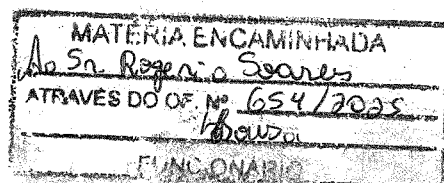 MATÉRIA ENCAMINHADA
Ao Sr. Rogerio Soares
ATRAVÉS DO OF. Nº 654/2025
FUNCIONÁRIO